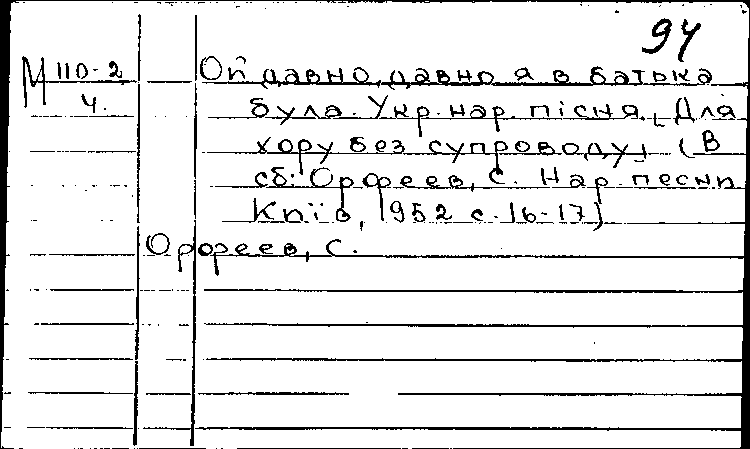 94
М 110-2 Ой давно, давно я в батька
4. була. Укр. нар. пісня. [Для
хору без супроводу] (В
сб: Орфеев, С. Нар. песни
Київ, 1952 с. 16-17)
Орфеев, С.